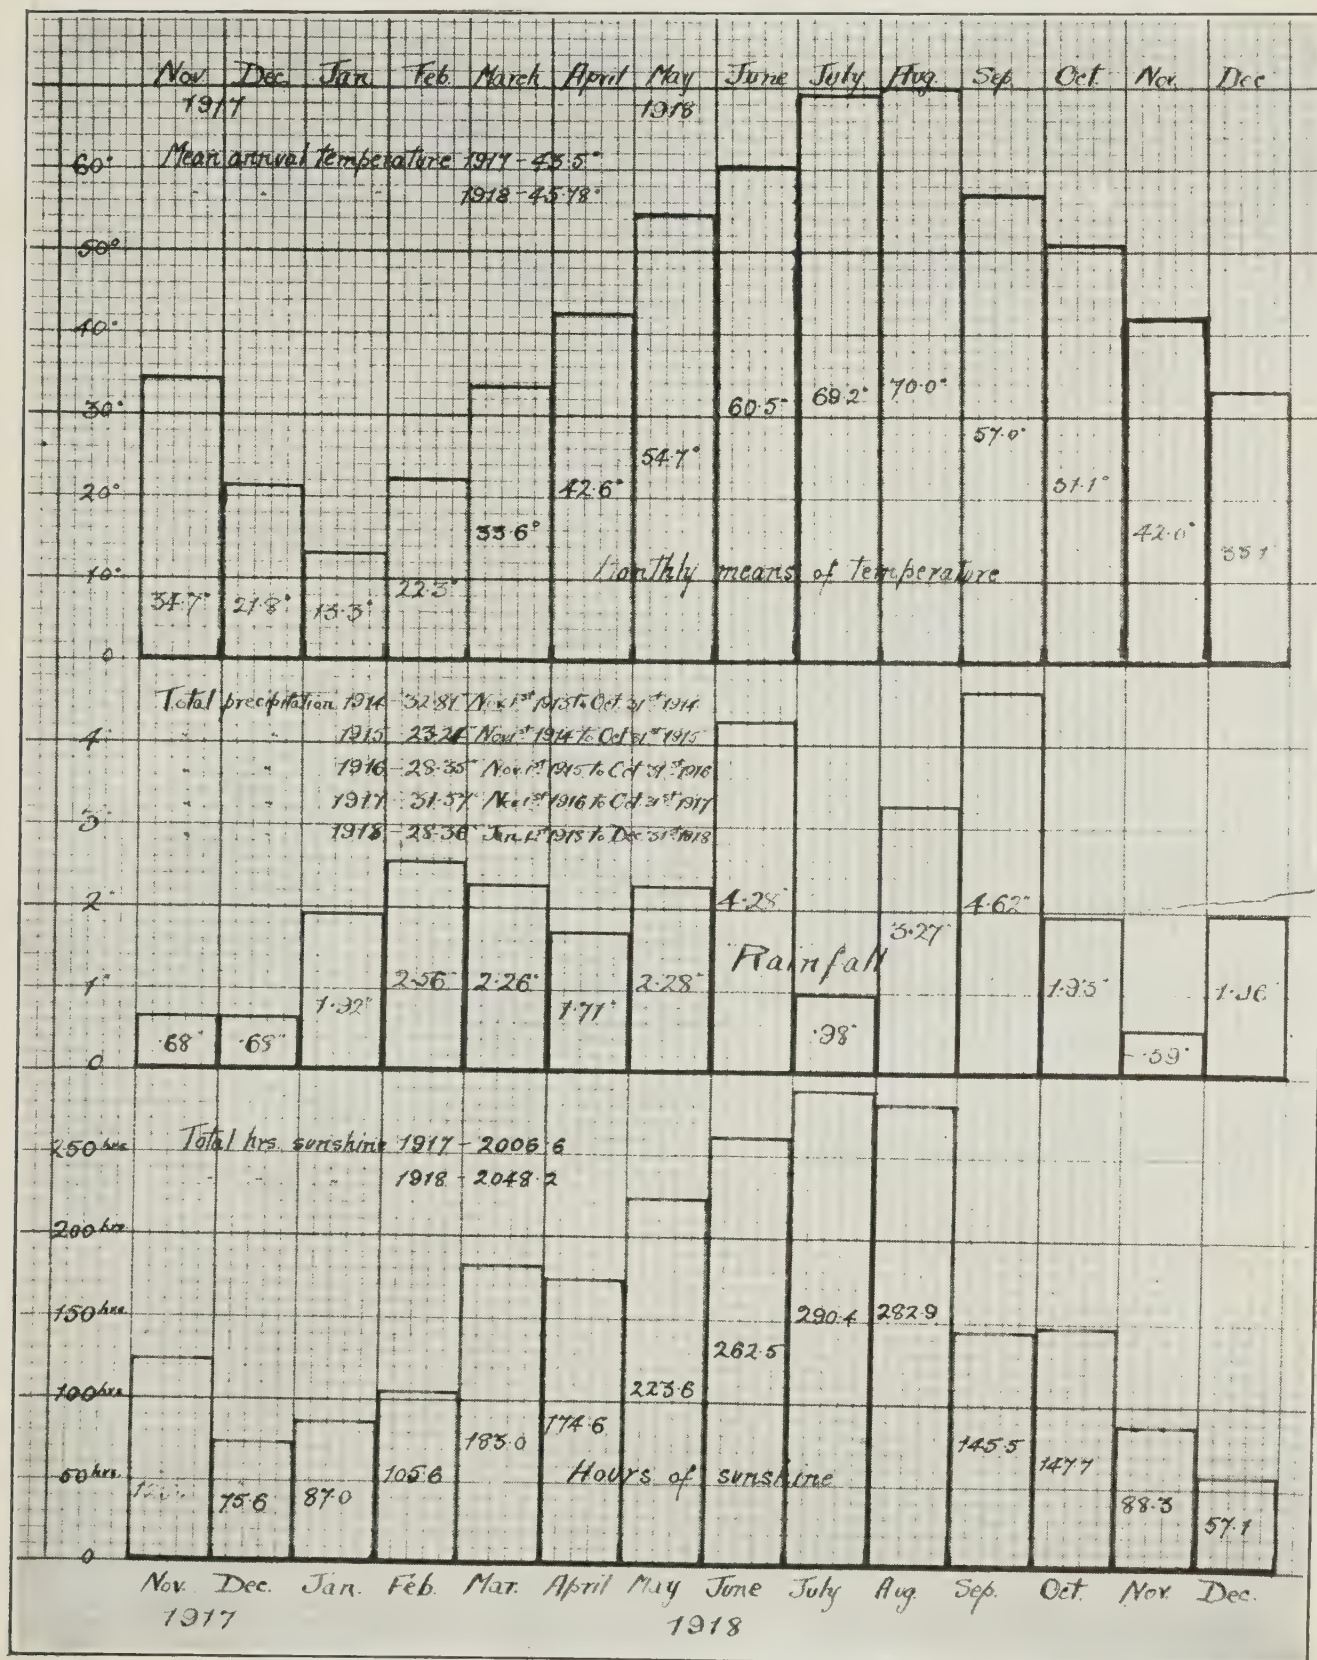 Nov. Dec. Jan. Feb. March April May June July Aug. Sep. Oct. Nov. Dec
1917 1918
60°
Mean annual temperature 1917-43.5°
1918-45.78°
50°
40°
30°
20°
10°
0
34.7° 21.8° 13.3° 22.3° 33.6° 42.6° 54.7° 60.5° 69.2° 70.0° 57.0° 51.1° 42.0° 33.1
Monthly means of temperature
Total precipitation 1914-32.81" Nov. 1st 1913 to Oct. 31st 1914
" " 1915-23.21" Nov. 1st 1914 to Oct 31st 1915
" " 1916-28.35" Nov. 1st 1915 to Oct 31st 1916
" " 1917-31.57" Nov. 1st 1916 to Oct 31st 1917
" " 1918-28.36" Jan. 1st 1918 to Dec 31st 1918
4"
3"
2"
1"
0
.68" .68" 1.92" 2.56" 2.26" 1.71" 2.28" 4.28" .98" 3.27" 4.62" 1.95" .59" 1.96"
Rainfall
Total hrs. sunshine 1917-2006.6
" " " 1918-2048.2
250 hrs.
200 hrs.
150 hrs.
100 hrs.
50 hrs.
0
75.6 87.0 105.6 183.0 174.6 223.6 262.5 290.4 282.9 145.5 147.7 88.3 57.1
Hours of sunshine
Nov. Dec. Jan. Feb. Mar. April May June July Aug. Sep. Oct. Nov. Dec.
1917 1918